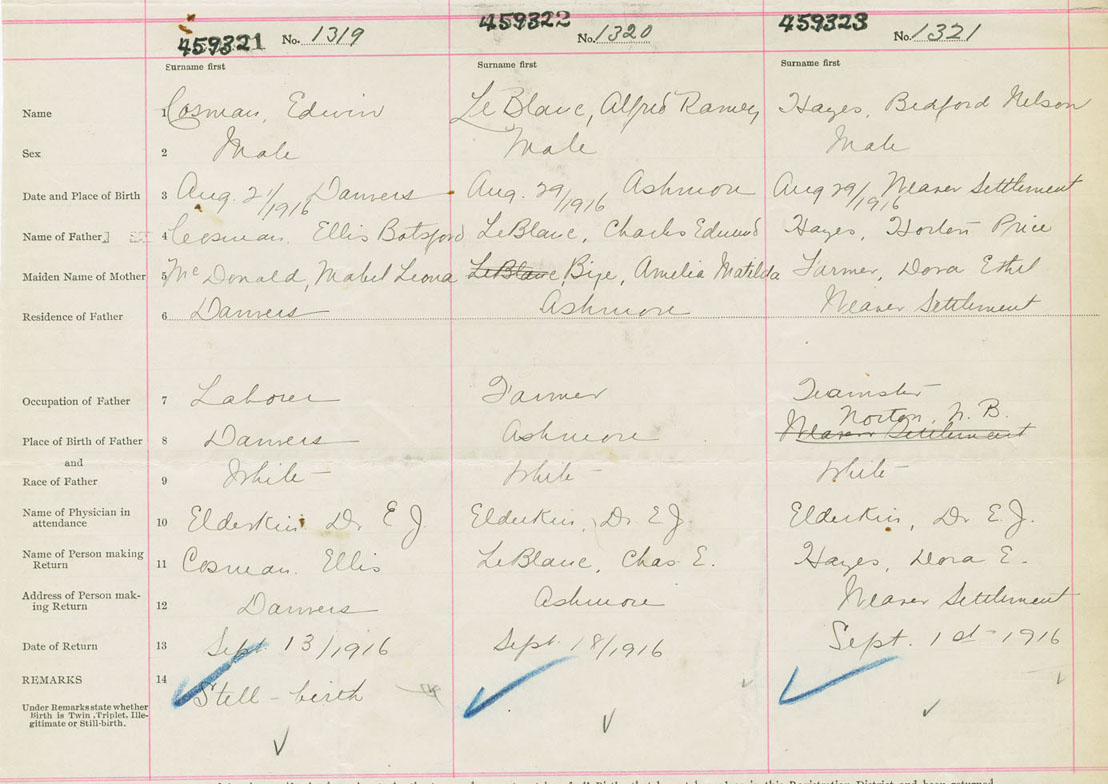 459321 No. 1319 459322 No. 1320 459323 No. 1321
Surname first Surname first Surname first
Name 1 Cosman, Edwin LeBlanc, Alfred Ramey Hayes, Bedford Nelson
Sex 2 Male Male Male
Date and Place of Birth 3 Aug. 21/1916 Danvers Aug. 29/1916 Ashmore Aug 29/1916 Weaver Settlement
Name of Father 4 Cosman. Ellis Botsford LeBlanc, Charles Edmund Hayes, Horton Price
Maiden Name of Mother 5 McDonald, Mabel Leona LeBlanc, Amelia Matilda Farmer, Dora Ethel
Residence of Father 6 Danvers Ashmore Weaver Settlement
Occupation of Father 7 Laborer Farmer Teamster
Norton, N. B.
Place of Birth of Father 8 Danvers Ashmore Weaver Settlement
and
Race of Father 9 White White White
Name of Physician in
attendance 10 Elderkin Dr E J. Elderkin, Dr E J. Elderkin, Dr E. J.
Name of Person making
Return 11 Cosman. Ellis LeBlanc, Chas E. Hayes, Dora E.
Address of Person mak-
ing Return 12 Danvers Ashmore Weaver Settlement
Date of Return 13 Sept. 13/1916 Sept 18/1916 Sept. 1st-1916
REMARKS 14 Still-birth
Under Remarks state whether
Birth is Twin, Triplet, Ille-
gitimate or Still-birth.